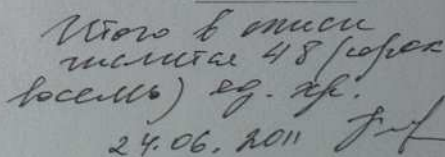 Итого в описи
числится 48 (сорок
восемь) ед. хр.
24.06.2011